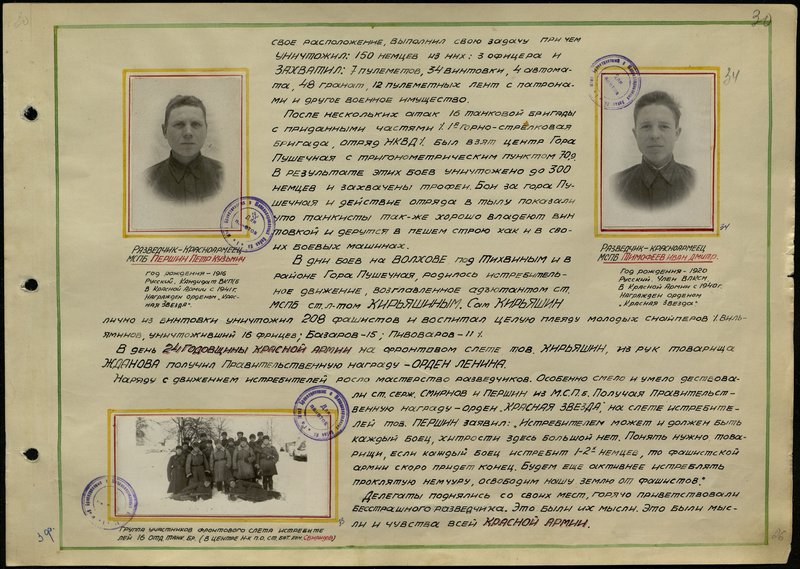 30
свое расположение, выполнил свою задачу при чем
уничтожил: 150 немцев из них: 3 офицера и
захватил: 7 пулеметов, 34 винтовки, 4 автома-
та, 48 гранат, 12 пулеметных лент с патрона-
ми и другое военное имущество.
После нескольких атак 16 танковой бригады
с приданными частями /. 1я горно-стрелковая
бригада, отряд НКВД/. был взят центр Гора
Пушечная с тригонометрическим пунктом 70,9
В результате этих боев уничтожено до 300
немцев и захвачены трофеи. Бои за гора Пу-
шечная и действие отряда в тылу показали
что танкисты так-же хорошо владеют вин
товкой и дерутся в пешем строю как и в сво-
их боевых машинах.
В дни боев на Волхове под Тихвиным и в
районе Гора Пушечная, родилось истребитель-
ное движение, возглавленное адъютантом ст.
МСПБ ст. л-том Кирьяшиным. Сам Кирьяшин
лично из винтовки уничтожил 208 фашистов и воспитал целую плеяду молодых снайперов /. Виль-
яминов, уничтоживший 16 фрицев; Базаров-15; Пивоваров-11 /.
В день 24 годовщины Красной Армии на фронтовом слете тов. Кирьяшин, из рук товарища
Жданова получил Правительственную награду - орден Ленина.
Наряду с движением истребителей росло мастерство разведчиков. Особенно смело и умело действова-
ли ст. серж. Смирнов и Першин из М.С.П.Б. Получая Правительст-
венную награду - орден „Красная Звезда", на слете истребите-
лей тов. Першин заявил: „Истребителем может и должен быть
каждый боец, хитрости здесь большой нет. Понять нужно това-
рищи, если каждый боец истребит 1-2х немцев, то фашистской
армии скоро придет конец. Будем еще активнее истреблять
проклятую немчуру, освободим нашу землю от фашистов."
Делегаты поднялись со своих мест, горячо приветствовали
бесстрашного разведчика. Это были их мысли. Это были мыс-
ли и чувства всей Красной Армии.
Разведчик-красноармеец
МСПБ Першин Петр Кузьмич
Год рождения - 1916
Русский. Кандидат ВКП/б
В Красной Армии с 1941г.
Награжден орденом „Крас-
ная Звезда".
34
Разведчик-красноармеец
МСПБ Тимофеев Иван Дмитр.
Год рождения - 1920
Русский. Член ВЛКСМ
В Красной Армии с 1940г.
Награжден орденом
„Красная Звезда"
Группа участников фронтового слета истребите
лей 16 отд. танк. бр. (в центре н-к п.о. ст. бат. ком. Свиридов)